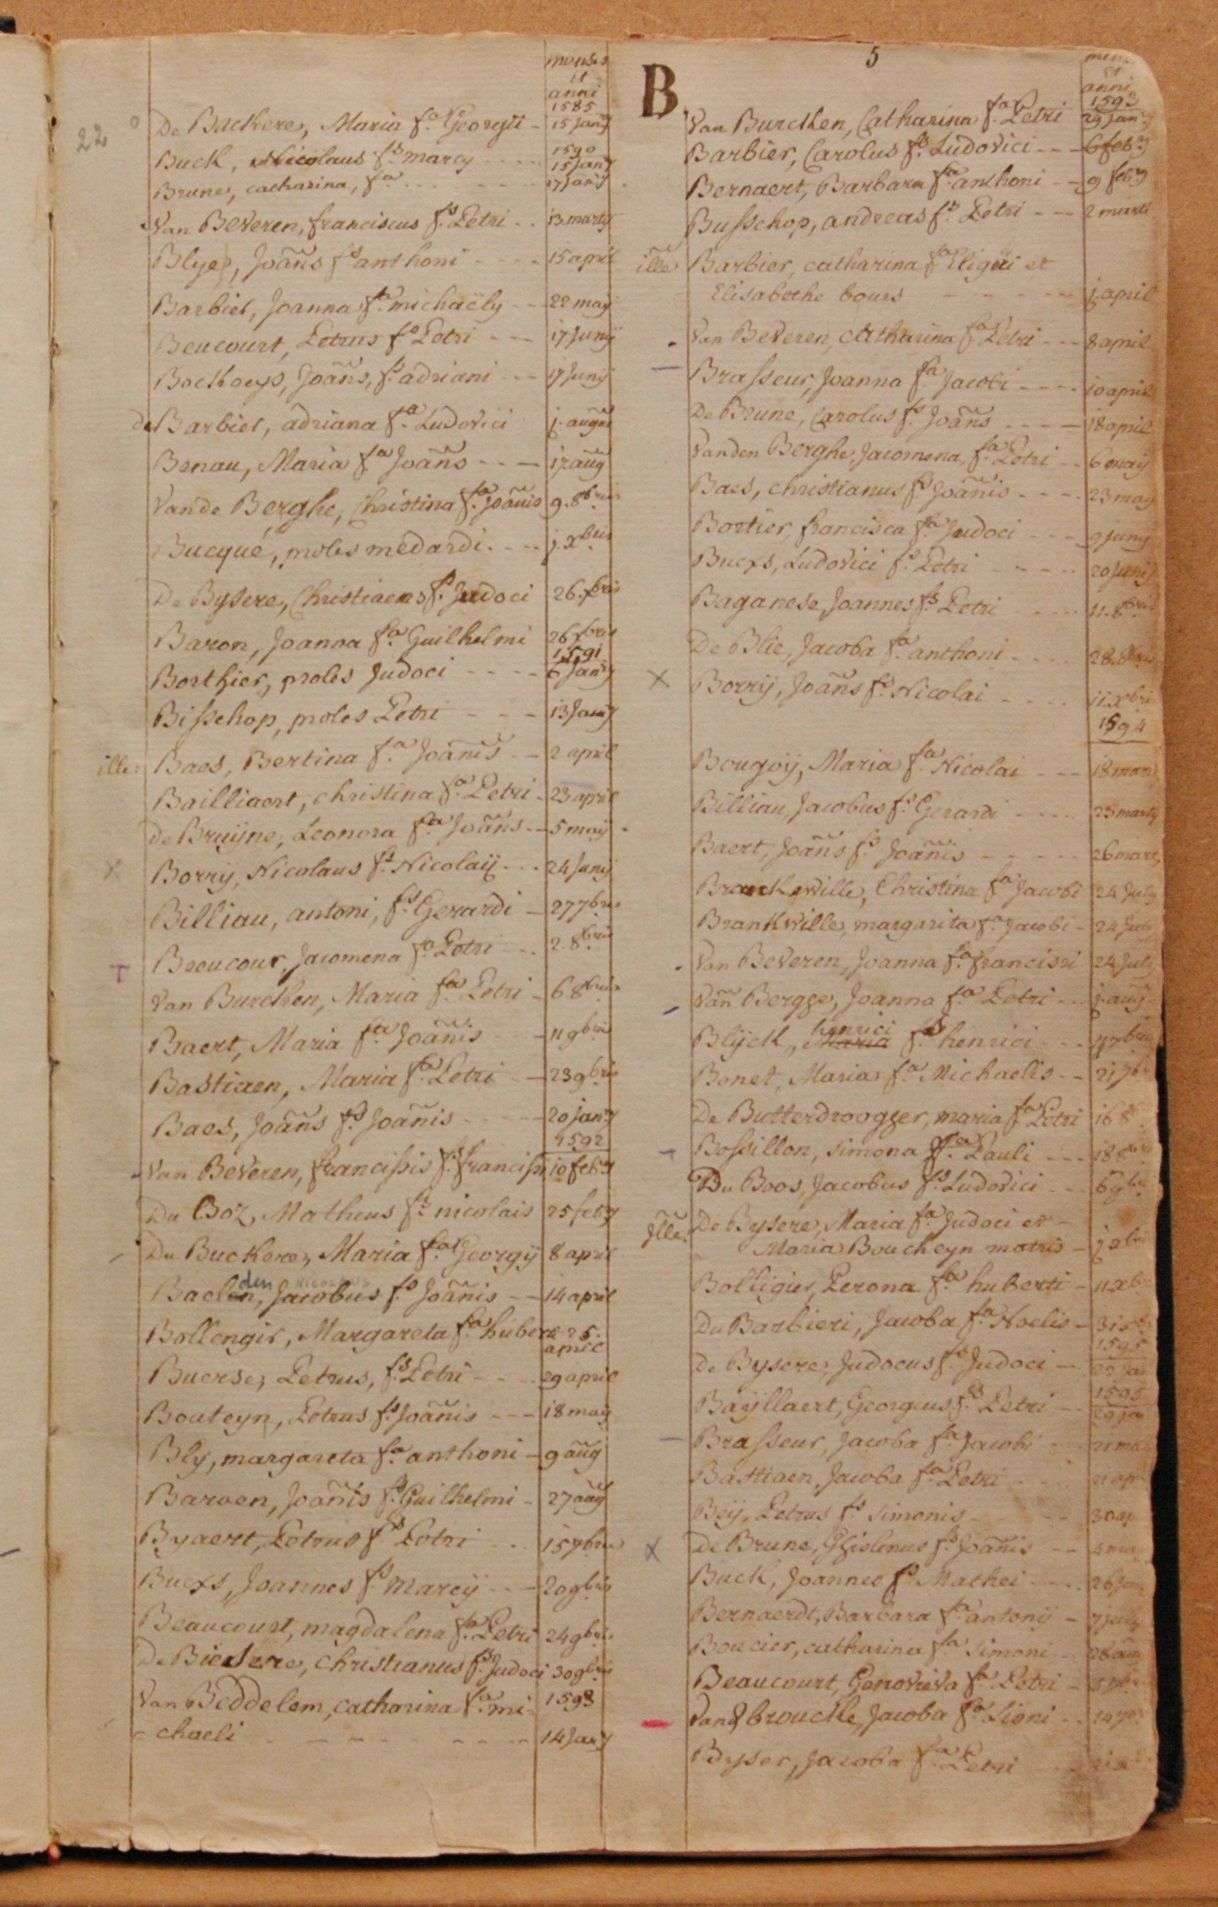 22
menses
et
anni
1585
De Backere, Maria fa. Georgii - 15 Janÿ
1590
Buck, Nicolaus fs marcÿ - - - - 15 Janÿ
Brune, catharina, fa - - - - - - 17 Janÿ
Van Beveren, franciscus fs. Petri - - 13 martÿ
Blye, Joan̄s fs anthoni - - - - 15 april
Barbier, Joanna fa michaëly - - 22 maÿ
Beucourt, Petrus fs Petri - - - 17 Junÿ
Boelboeys, Joan̄s, fs. adriani - - - 17 Junÿ
de Barbier, adriana fa. Ludovici j. augus
Benau, Maria fa Joan̄s - - - 12 aug
Van de Berghe, Christina fa. Joan̄is 9. 8bris
Bucqué, proles medardi. - - - j. xbris
De Bysere, Christiaens fs. Judoci 26. xbris
Baron, Joanna fa Guilhelmi 26 xbris
1591
Borthier, proles Judoci - - - - 6 Janÿ
Bisschop, proles Petri - - - 13 Janÿ
ille: Baes, Bertina fa. Joan̄is - - 2 april
Bailliaert, christina fa. Petri - 23 april
De Bruÿne, Leonora fa. Joan̄s - - 5 maÿ
x Borrÿ, Nicolaus fs. Nicolaÿ - - - 24 Junÿ
Billiau, antoni, fs. Gerardi - 27 7bris
Beoucour, Jacomena fa. Petri - - 2. 8bris
Van Burcken, Maria fa Petri - 6 8bris
Baert, Maria fa Joan̄is - - 11 9bris
Bastiaen, Maria fa. Petri - 23 9bris
Baes, Joan̄s fs Joan̄is - - - 20 janÿ
1592
Van Beveren, francissis fs. francissi 10 febrÿ
Du Boz, Matheus fs. nicolais 25 febÿ
De Buckere, Maria fa. Georgÿ 8 april
den
Baelen, Jacobus fs Joan̄is - - 14 april
Bollengir, Margareta fa. hubert 25.
april
Buerse, Petrus, fs. Petri - - - 29 april
Bouteyn, Petrus fs. Joan̄is - - - 18 maÿ
Bly, margareta fa. anthoni - 9 aug
Barven, Joan̄is fs Guilhelmi - 27 aug
Byaert, Petrus fs Petri - - 15 7bris
Buexs, Joannes fs Marcÿ - - - 20 9bris
Beaucourt, magdalena fa. Petri 24 9bris
De Biesere, christianus fs. Judoci 30 9bris
Van Beddelem, catharina fa. mi- 1593
chaeli - - - - - - - 14 Janÿ
5
B
menses
et
anni
1593
Van Burcken, Catharina fa. Petri 24 Janÿ
Barbier, Carolus fs Ludovici - - - 6 febÿ
Bernaert, Barbara fa anthoni - - 9 febÿ
Busschop, andreas fs. Petri - - - 2 marti
ille Barbier, catharina fa Eligii et
Elisabethe bours - - - - j april
Van Beveren, catharina fa Petri - - - 8 april
Brasseur, Joanna fa. Jacobi - - - - 10 april
De Brune, Carolus fs. Joan̄s - - - - 18 april
Vanden Berghe, Jacomena fa. Petri - - 6 maÿ
Baes, christianus fs Joan̄is - - - - 23 maÿ
Bortier, francisca fa Judoci - - - 9 Junÿ
Buexs, Ludovici fs. Petri - - - - - 20 Junÿ
Baganese, Joannes fs Petri - - - - 11. 8bris
De Blie, Jacoba fa anthoni - - - - 28. 8bris
x Borrÿ, Joan̄s fs Nicolai - - - - 11 xbris
1594
Bourgoÿ, Maria fa Nicolai - - - 18 mars
Billiau, Jacobus fs. Gerardi - - - - 25 martÿ
Baert, Joan̄s fs. Joan̄is - - - - 26 mart
Branckwille, Christina fa Jacobi 24 Julÿ
Brankwille margarita fa Jacobi - 24 Julÿ
Van Beveren, Joanna fa francissi 24 July
Van Bergge, Joanna fa Petri - - j. aug
henrici
Blÿck, Maria fs henrici - - 7bris
Bonet, Maria fa Michaelis - - 21 7b
De Butterdroogger, maria fa Petri 16 8
Bossillon, simona fa. Pauli - - - 18 8bris
Du Boos, Jacobus fs Ludovici - - 6 9bri
Jlle: De Bysere, Maria fa Judoci et -
Maria Boucheyn matris - j xbris
Bolligier, Perona fa huberti - 11 xb
Du Barbieri, Jacoba fa. Noelis - 31 xb
1595
De Bysere, Judocus fs Judoci - 22 Ja
1595
Baÿllaert, Georgius fs. Petri - - 29 ja
Brasseur, Jacoba fa. Jacobi - 21 ma
Bastiaen, Jacoba fa Petri - - - 21 ap
Beij, Petrus fs Simonis - - - 30 ap
x De Brune, Ghislenus fs. Joan̄is - - 4 ma
Buck, Joannes fs. Mathei - - - 26 Jun
Bernaerdt, Barbara fa antonÿ - 7 July
Boucier, catharina fa. Simoni - - 28 aug
Beaucourt, Genovieva fa. Petri -
Vand broucke, Jacoba fa Sioni - - 14 7b
Byser, Jacoba fa Petri - - -